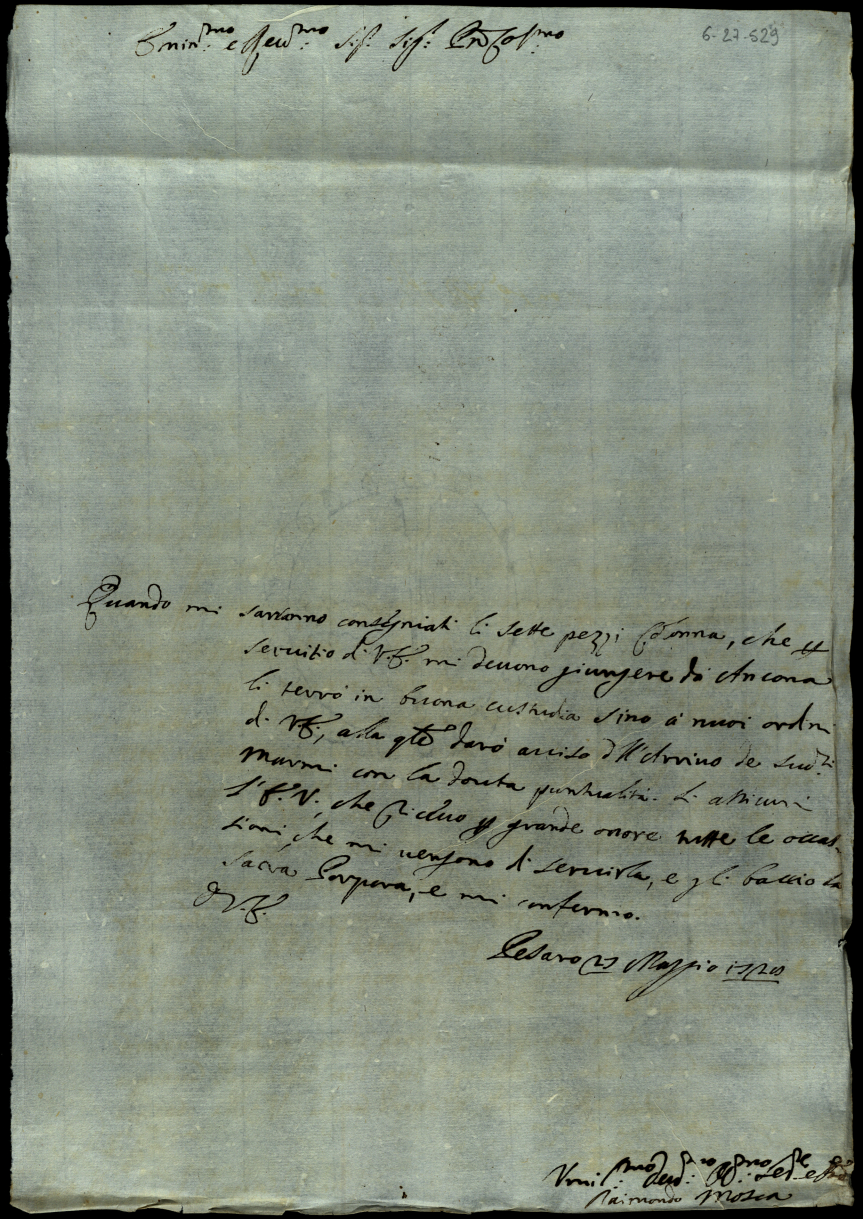 Emin.mo e Reud.mo Sig.r Sig.r Pron Col.mo
6-27-529
Quando mi sarranno consegniati li sette pezzi Colonna, che p
seruitio di V.E. mi deuono giungere da Ancona
li terrò in buona custudia sino à nuoi ordini
di V.E., alla qle darò auiso dll'Arriuo de sud.ti
Marmi con la douta puntualità. Si assicuri
l'E.V., che riceuo p grande onore tutte le occas-
sioni, che mi uengono di seruirla, e gli baccio la
Sacra Porpora, e mi confermo.
D V.E.
Pesaro Maggio
Vmi.mo Deud.mo Obb.mo Se.re
Raimondo Mosca